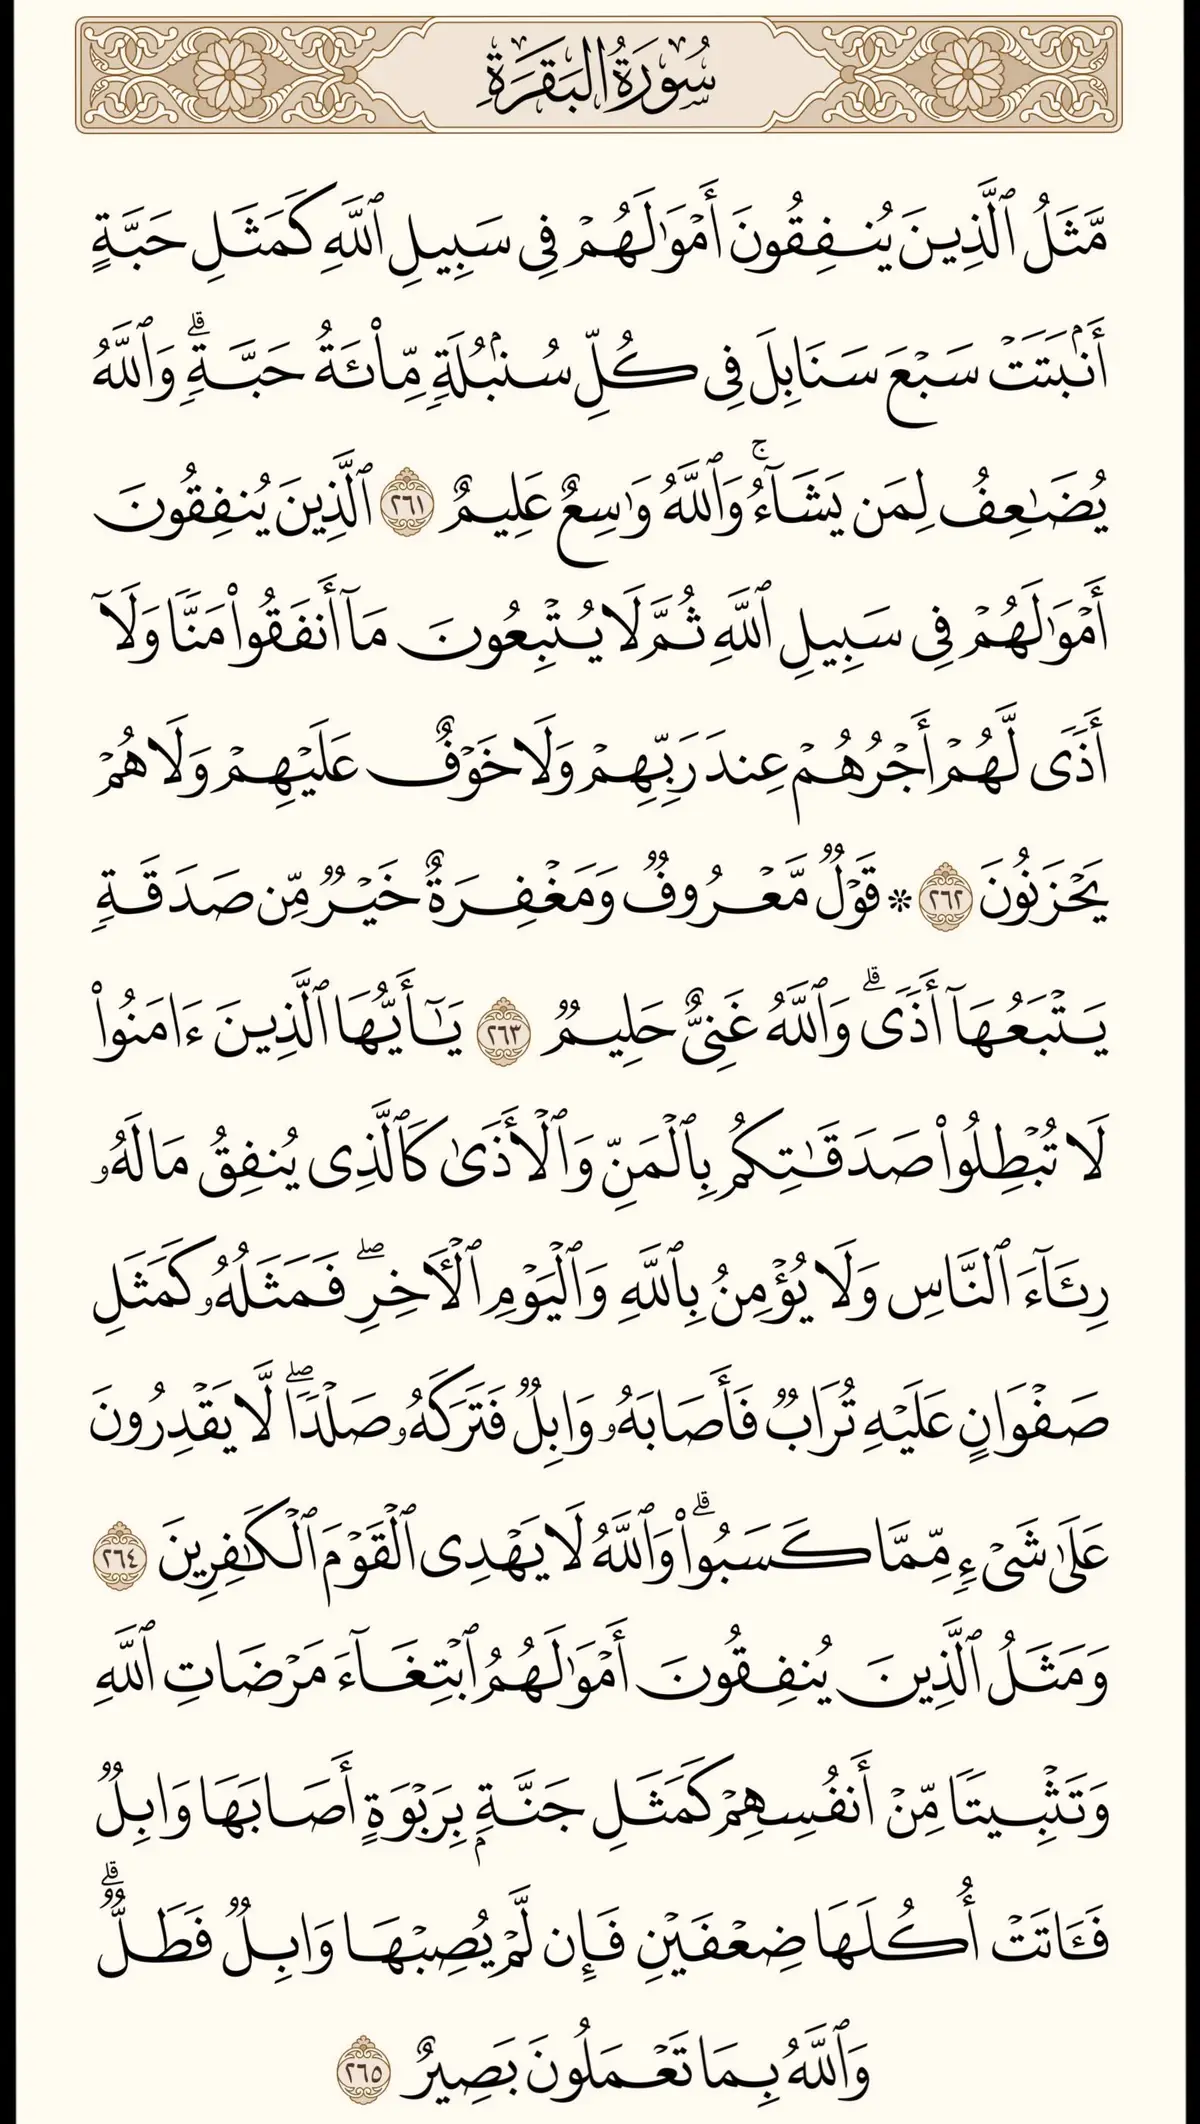 سُورَةُ البَقَرَةِ
مَّثَلُ ٱلَّذِينَ يُنفِقُونَ أَمۡوَٰلَهُمۡ فِي سَبِيلِ ٱللَّهِ كَمَثَلِ حَبَّةٍ
أَنۢبَتَتۡ سَبۡعَ سَنَابِلَ فِي كُلِّ سُنۢبُلَةٖ مِّاْئَةُ حَبَّةٖۗ وَٱللَّهُ
يُضَٰعِفُ لِمَن يَشَآءُۚ وَٱللَّهُ وَٰسِعٌ عَلِيمٌ ٢٦١ ٱلَّذِينَ يُنفِقُونَ
أَمۡوَٰلَهُمۡ فِي سَبِيلِ ٱللَّهِ ثُمَّ لَا يُتۡبِعُونَ مَآ أَنفَقُواْ مَنّٗا وَلَآ
أَذٗى لَّهُمۡ أَجۡرُهُمۡ عِندَ رَبِّهِمۡ وَلَا خَوۡفٌ عَلَيۡهِمۡ وَلَا هُمۡ
يَحۡزَنُونَ ٢٦٢ ۞ قَوۡلٞ مَّعۡرُوفٞ وَمَغۡفِرَةٌ خَيۡرٞ مِّن صَدَقَةٖ
يَتۡبَعُهَآ أَذٗىۗ وَٱللَّهُ غَنِيٌّ حَلِيمٞ ٢٦٣ يَٰٓأَيُّهَا ٱلَّذِينَ ءَامَنُواْ
لَا تُبۡطِلُواْ صَدَقَٰتِكُم بِٱلۡمَنِّ وَٱلۡأَذَىٰ كَٱلَّذِي يُنفِقُ مَالَهُۥ
رِئَآءَ ٱلنَّاسِ وَلَا يُؤۡمِنُ بِٱللَّهِ وَٱلۡيَوۡمِ ٱلۡأٓخِرِۖ فَمَثَلُهُۥ كَمَثَلِ
صَفۡوَانٍ عَلَيۡهِ تُرَابٞ فَأَصَابَهُۥ وَابِلٞ فَتَرَكَهُۥ صَلۡدٗاۖ لَّا يَقۡدِرُونَ
عَلَىٰ شَيۡءٖ مِّمَّا كَسَبُواْۗ وَٱللَّهُ لَا يَهۡدِي ٱلۡقَوۡمَ ٱلۡكَٰفِرِينَ ٢٦٤
وَمَثَلُ ٱلَّذِينَ يُنفِقُونَ أَمۡوَٰلَهُمُ ٱبۡتِغَآءَ مَرۡضَاتِ ٱللَّهِ
وَتَثۡبِيتٗا مِّنۡ أَنفُسِهِمۡ كَمَثَلِ جَنَّةِۭ بِرَبۡوَةٍ أَصَابَهَا وَابِلٞ
فَـَٔاتَتۡ أُكُلَهَا ضِعۡفَيۡنِ فَإِن لَّمۡ يُصِبۡهَا وَابِلٞ فَطَلّٞۗ
وَٱللَّهُ بِمَا تَعۡمَلُونَ بَصِيرٌ ٢٦٥